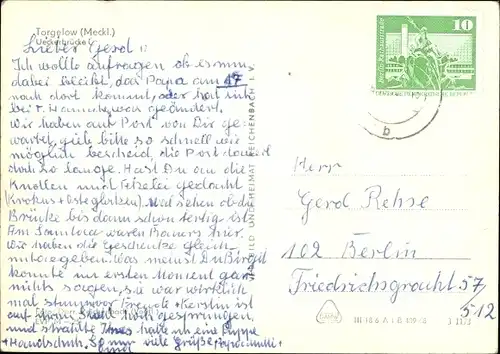 Torgelow (Meckl.)
Ueckerbrücke
Lieber Gerd!!
Ich wollte anfragen ob es nun
dabei bleibt, das Papa am 17
nach dort kommt, oder hat sich
bei geändert.
Wir haben auf Post von Dir ge-
wartet, gieb bitte so schnell wie
möglich bescheid, die Post dauert
doch so lange. Hast Du an die
Knollen und gedacht
(Krokus + Osterglocken). Mal sehen ob die
Brücke bis dann schon fertig ist.
Am waren Bauers hier.
Wir haben die Geschenke gleich
mitgegeben. Was meinst Du Birgit
konnte im ersten Moment gar
nichts sagen, sie war wirklich
mal stumm vor Freude + Kerstin ist
auf ihren Stuhl hoch gesprungen,
und strahlte habe ich eine Puppe
+ Handschuh. So nun viele Grüße
BILD UND HEIMAT REICHENBACH
10
DEUTSCHE DEMOKRATISCHE REPUBLIK
b
Herr
Gerd Rehse
102 Berlin
Friedrichsgracht 57
/512